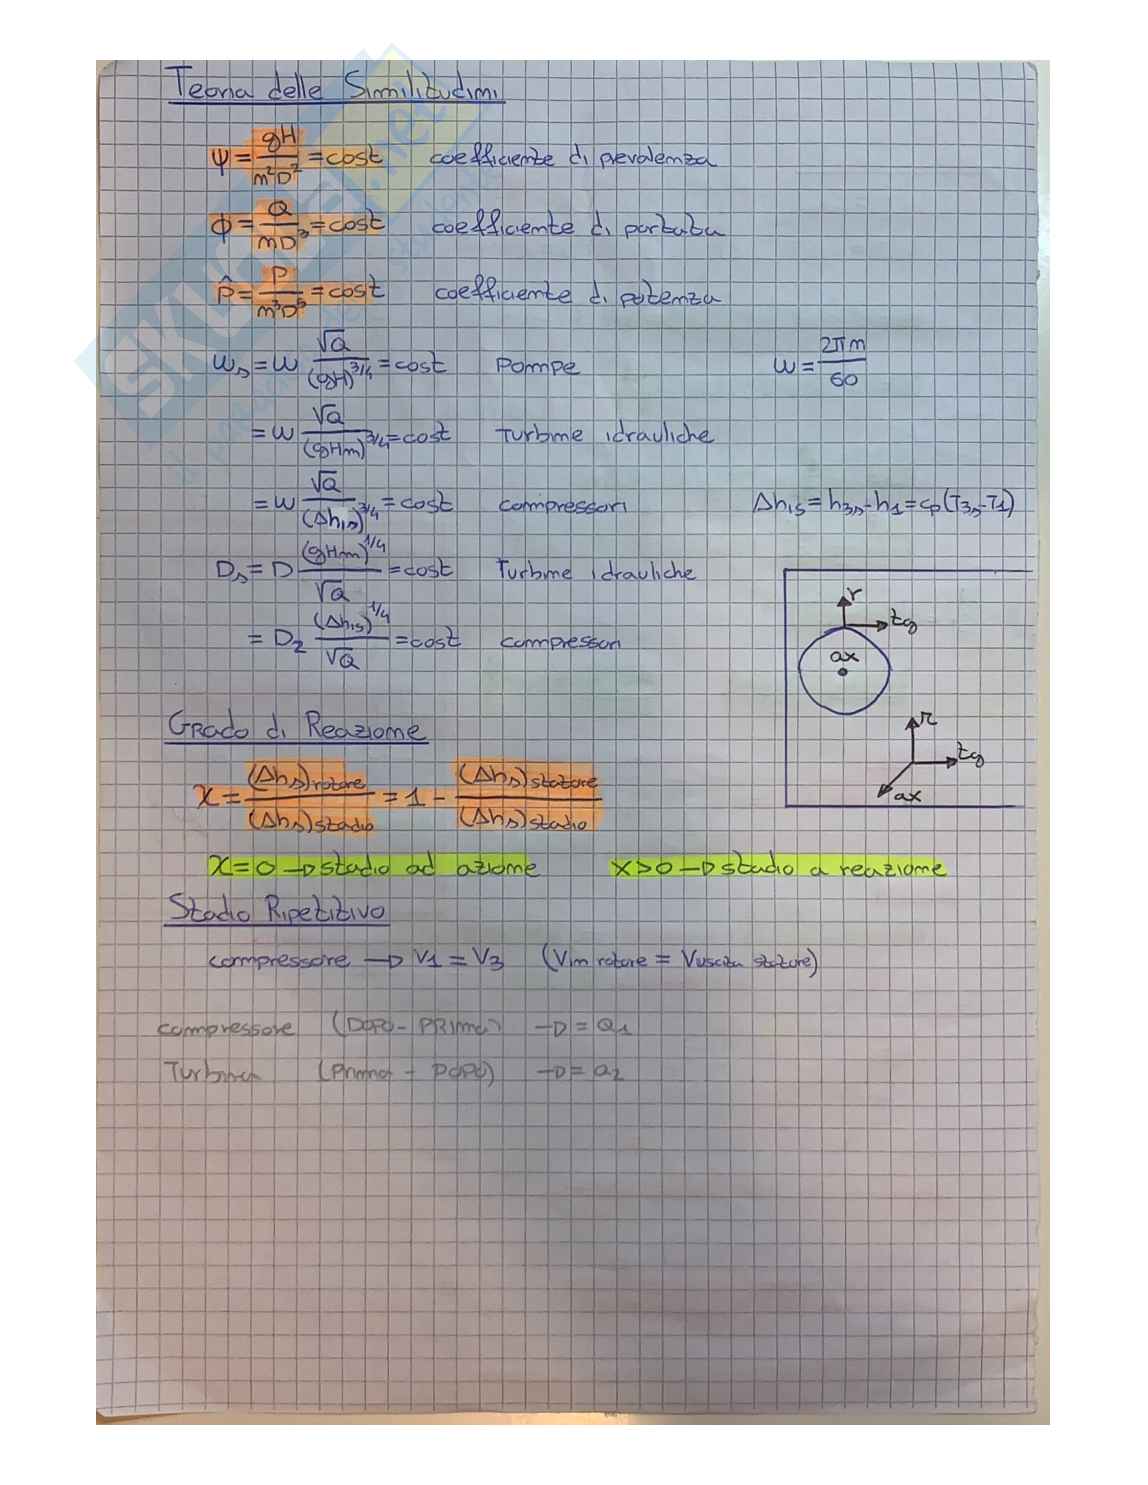 Teoria delle Similitudini
ψ = gH / n²D² = cost coefficiente di prevalenza
φ = Q / nD³ = cost coefficiente di portata
P̂ = P / n³D⁵ = cost coefficiente di potenza
ωs = ω √Q / (gH)^3/4 = cost Pompe ω = 2πn / 60
= ω √Q / (gHm)^3/4 = cost Turbine idrauliche
= ω √Q / (Δhis)^3/4 = cost compressori Δhis = h3s - h1 = cp(T3s - T1)
Ds = D (gHm)^1/4 / √Q = cost Turbine idrauliche
= D2 (Δhis)^1/4 / √Q = cost compressori
r
tg
ax
r
tg
ax
Grado di Reazione
χ = (Δhs)rotore / (Δhs)stadio = 1 - (Δhs)statore / (Δhs)stadio
χ = 0 → stadio ad azione χ > 0 → stadio a reazione
Stadio Ripetitivo
compressore → V1 = V3 (Vin rotore = Vuscita statore)
compressore (DOPO - PRIMA) → = Q1
Turbina (Prima - DOPO) → = Q2
SKUOLA.net